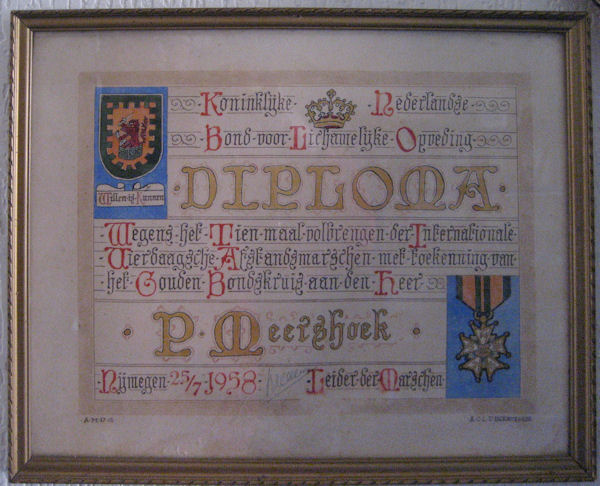 Koninklyke Nederlandse
Bond voor Lichamelyke Opveding
Willen is Kunnen
DIPLOMA
Wegens het Tien maal volbrengen der Internationale
Vierdaagsche Afstandsmarschen met toekenning van
het Gouden Bondskruis aan den Heer
P. Meershoek
Nijmegen 25/7 1958
Leider der Marschen